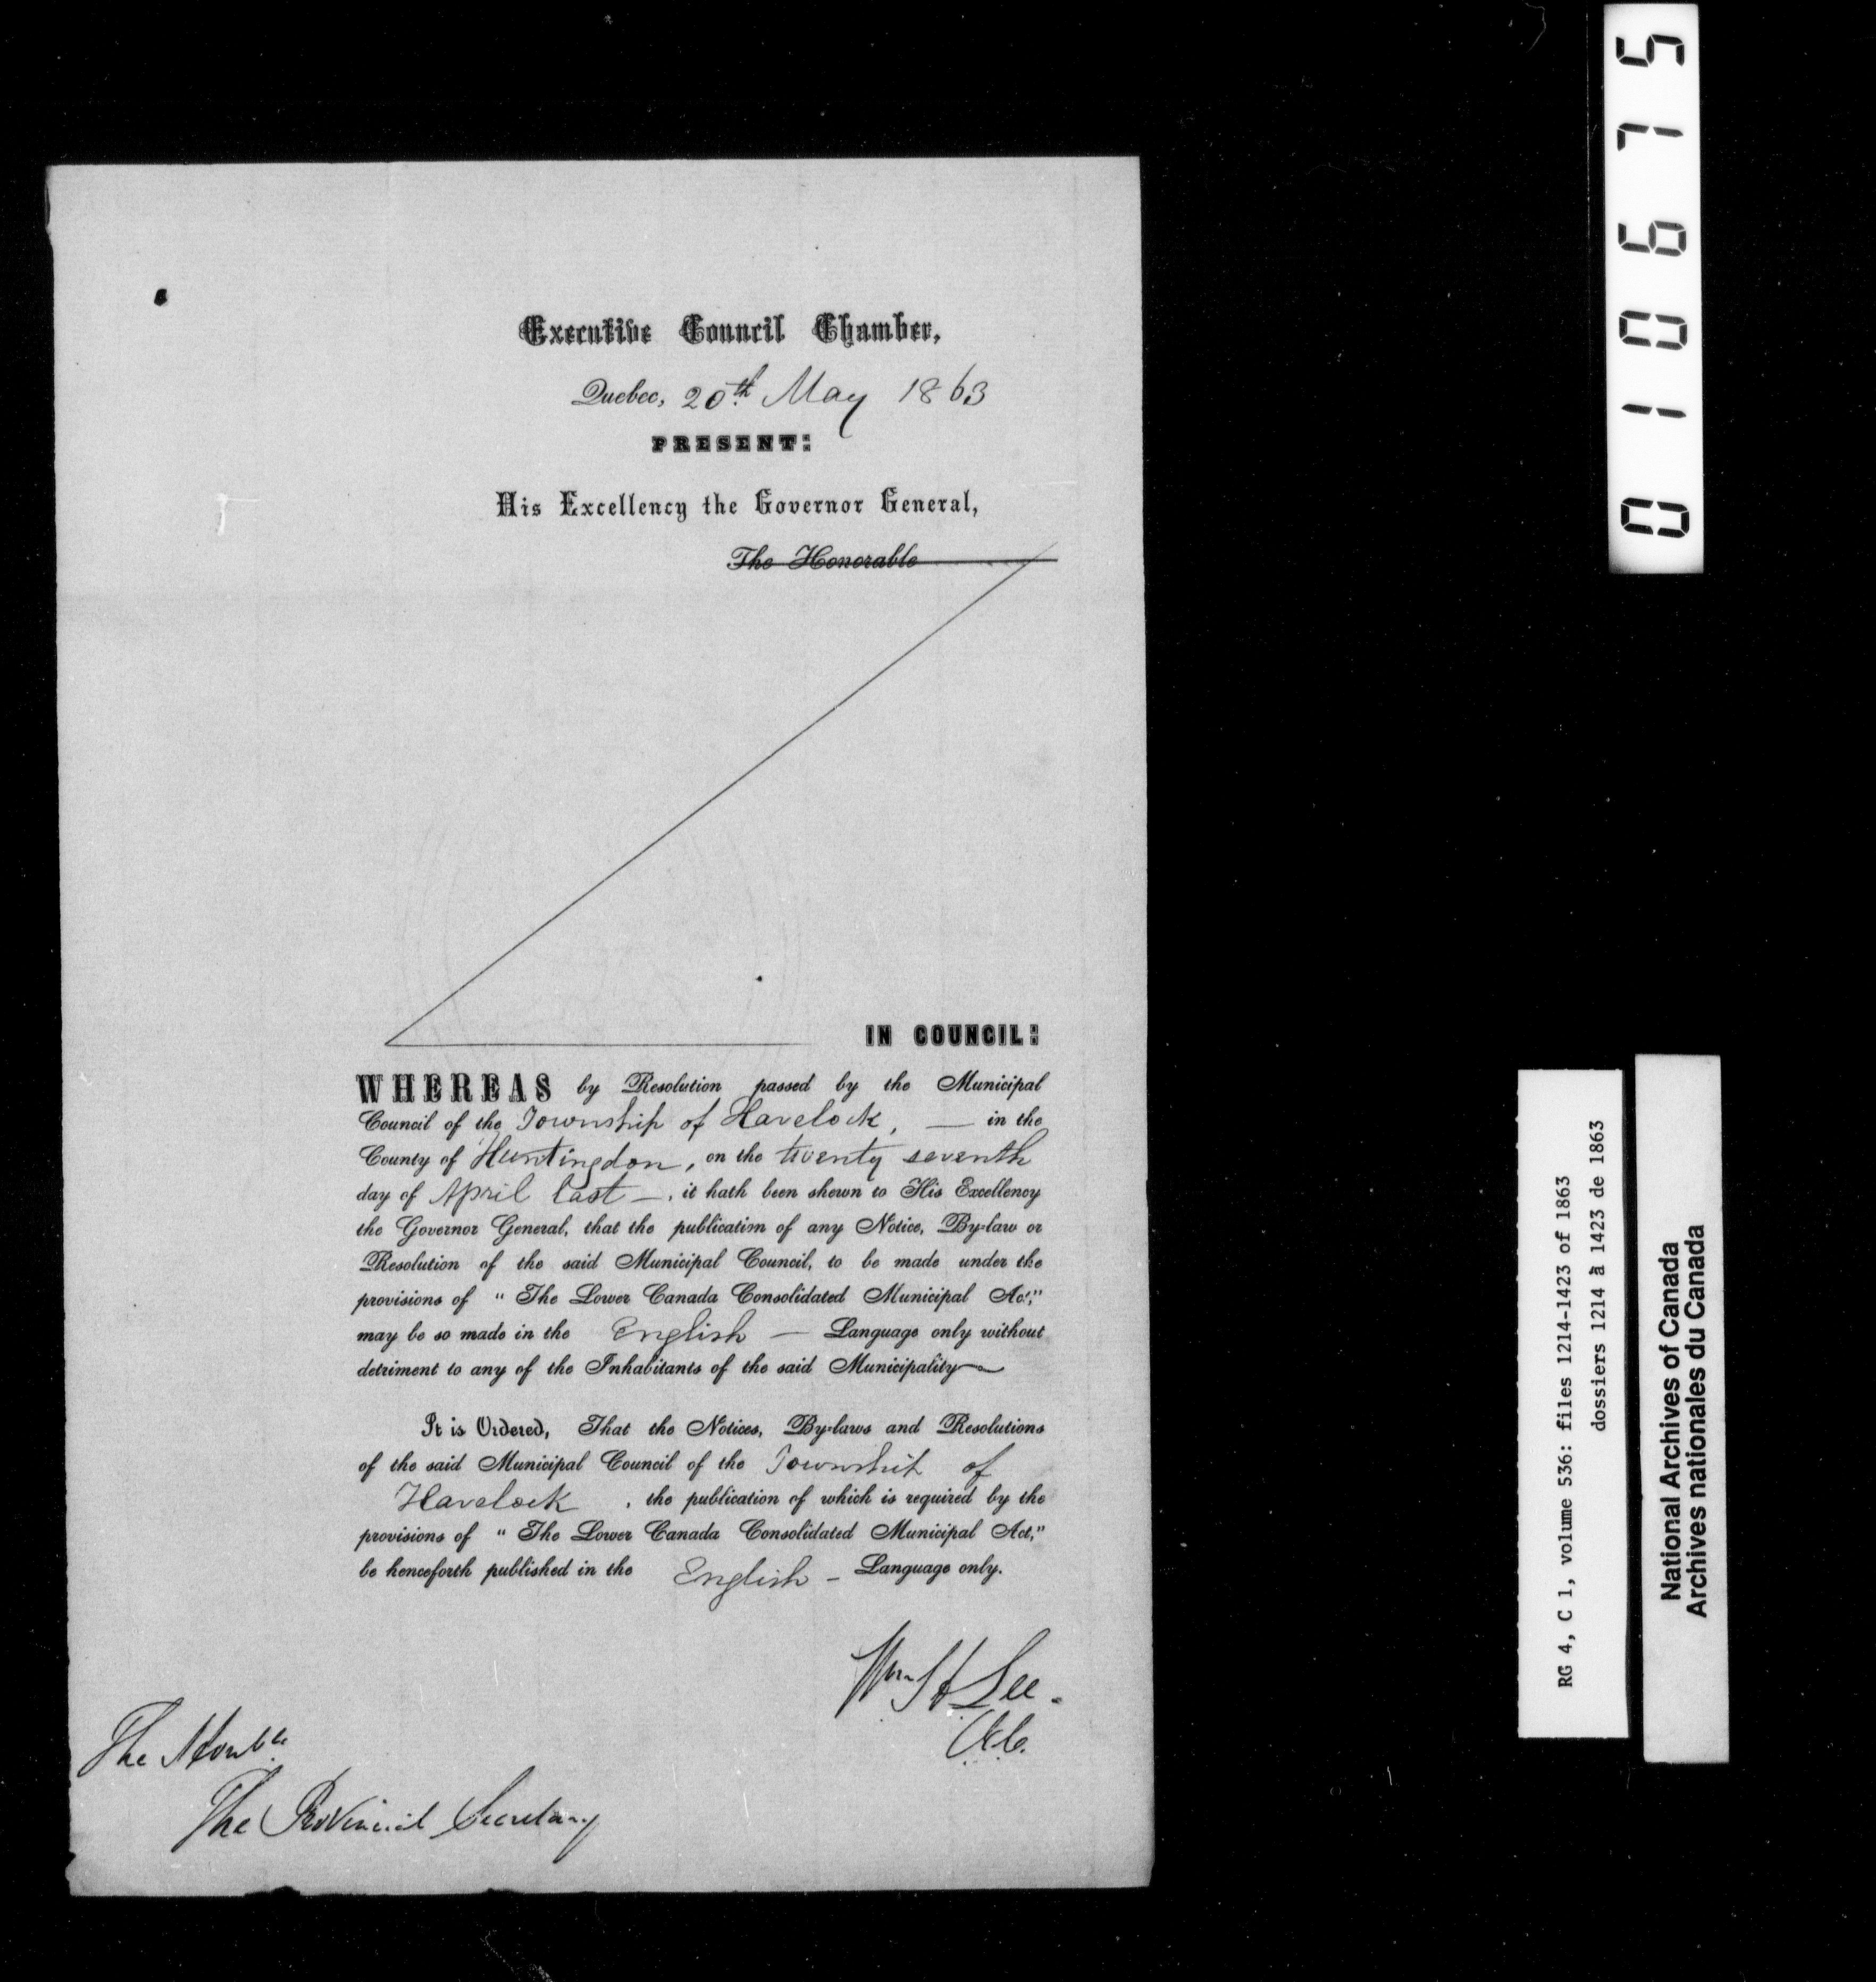 Executive Council Chamber,
Quebec, 20th May 1863
PRESENT:
His Excellency the Governor General,
The Honorable
IN COUNCIL:
WHEREAS by Resolution passed by the Municipal
Council of the Township of Havelock, — in the
County of Huntingdon, on the twenty seventh
day of April last —, it hath been shewn to His Excellency
the Governor General, that the publication of any Notice, By-law or
Resolution of the said Municipal Council, to be made under the
provisions of "The Lower Canada Consolidated Municipal Act,"
may be so made in the English — Language only without
detriment to any of the Inhabitants of the said Municipality
It is Ordered, That the Notices, By-laws and Resolutions
of the said Municipal Council of the Township of
Havelock, the publication of which is required by the
provisions of "The Lower Canada Consolidated Municipal Act,"
be henceforth published in the English – Language only.
Wm H Lee.
C.E.C.
The Honble
The Provincial Secretary
010675
RG 4, C 1, volume 536: files 1214-1423 of 1863
dossiers 1214 à 1423 de 1863
National Archives of Canada
Archives nationales du Canada